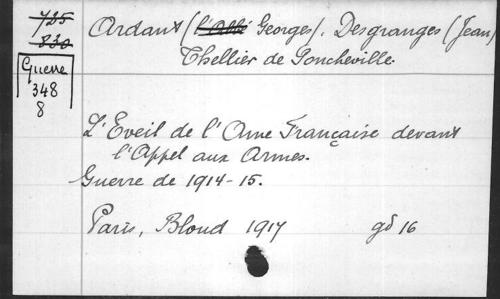 725
830
Guerre
348
8
Ardant (l'Abbé Georges). Desgranges (Jean)
Thellier de Poncheville.
L'Eveil de l'Ame Française devant
l'Appel aux Armes.
Guerre de 1914-15.
Paris, Bloud 1917 gd 16